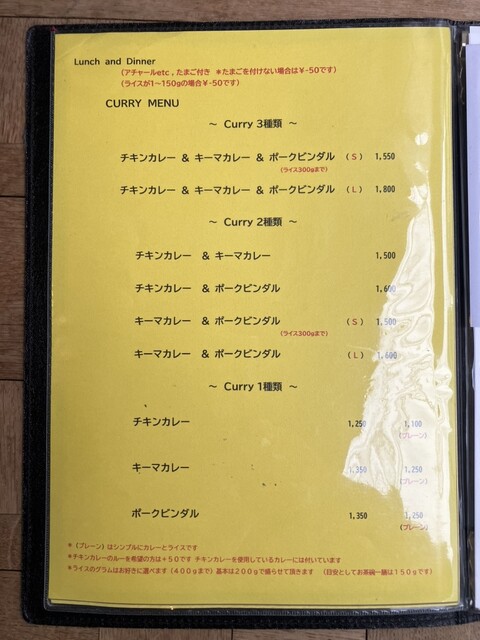 Lunch and Dinner
（アチャールetc , たまご付き ＊たまごを付けない場合は¥-50です）
（ライスが1～150gの場合¥-50です）
CURRY MENU
～ Curry 3種類 ～
チキンカレー ＆ キーマカレー ＆ ポークビンダル （S） 1,550
（ライス300gまで）
チキンカレー ＆ キーマカレー ＆ ポークビンダル （L） 1,800
～ Curry 2種類 ～
チキンカレー ＆ キーマカレー 1,500
チキンカレー ＆ ポークビンダル 1,600
キーマカレー ＆ ポークビンダル （S） 1,500
（ライス300gまで）
キーマカレー ＆ ポークビンダル （L） 1,600
～ Curry 1種類 ～
チキンカレー 1,250 1,100
（プレーン）
キーマカレー 1,350 1,250
（プレーン）
ポークビンダル 1,350 1,250
（プレーン）
＊（プレーン）はシンプルにカレーとライスです
＊チキンカレーのルーを希望の方は＋50です チキンカレーを使用しているカレーには付いています
＊ライスのグラムはお好きに選べます（400gまで）基本は200gで盛らせて頂きます （目安としてお茶碗一膳は150gです）